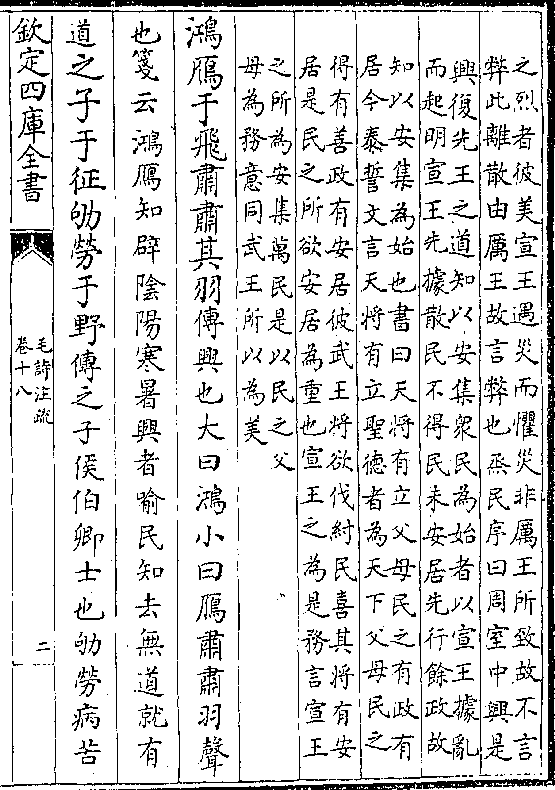 之烈者彼美宣王遇災而懼災非厲王所致故不言
弊此離散由厲王故言弊也烝民序曰周室中興是
興復先王之道知以安集衆民為始者以宣王據亂
而起明宣王先據散民不得民未安居先行餘政故
知以安集為始也書曰天將有立父母民之有政有
居今泰誓文言天將有立聖德者為天下父母民之
得有善政有安居彼武王將欲伐紂民喜其將有安
居是民之所欲安居為重也宣王之為是務言宣王
之所為安集萬民是以民之父
母為務意同武王所以為美
鴻鴈于飛肅肅其羽傳興也大曰鴻小曰鴈肅肅羽聲
也箋云鴻鴈知辟陰陽寒暑興者喻民知去無道就有
道之子于征劬勞于野傳之子侯伯卿士也劬勞病苦
欽定四庫全書
毛詩注疏
卷十八
二